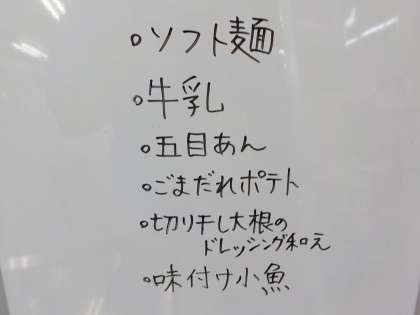 。ソフト麺
。牛乳
。五目あん
。ごまだれポテト
。切り干し大根の
ドレッシング和え
。味付け小魚